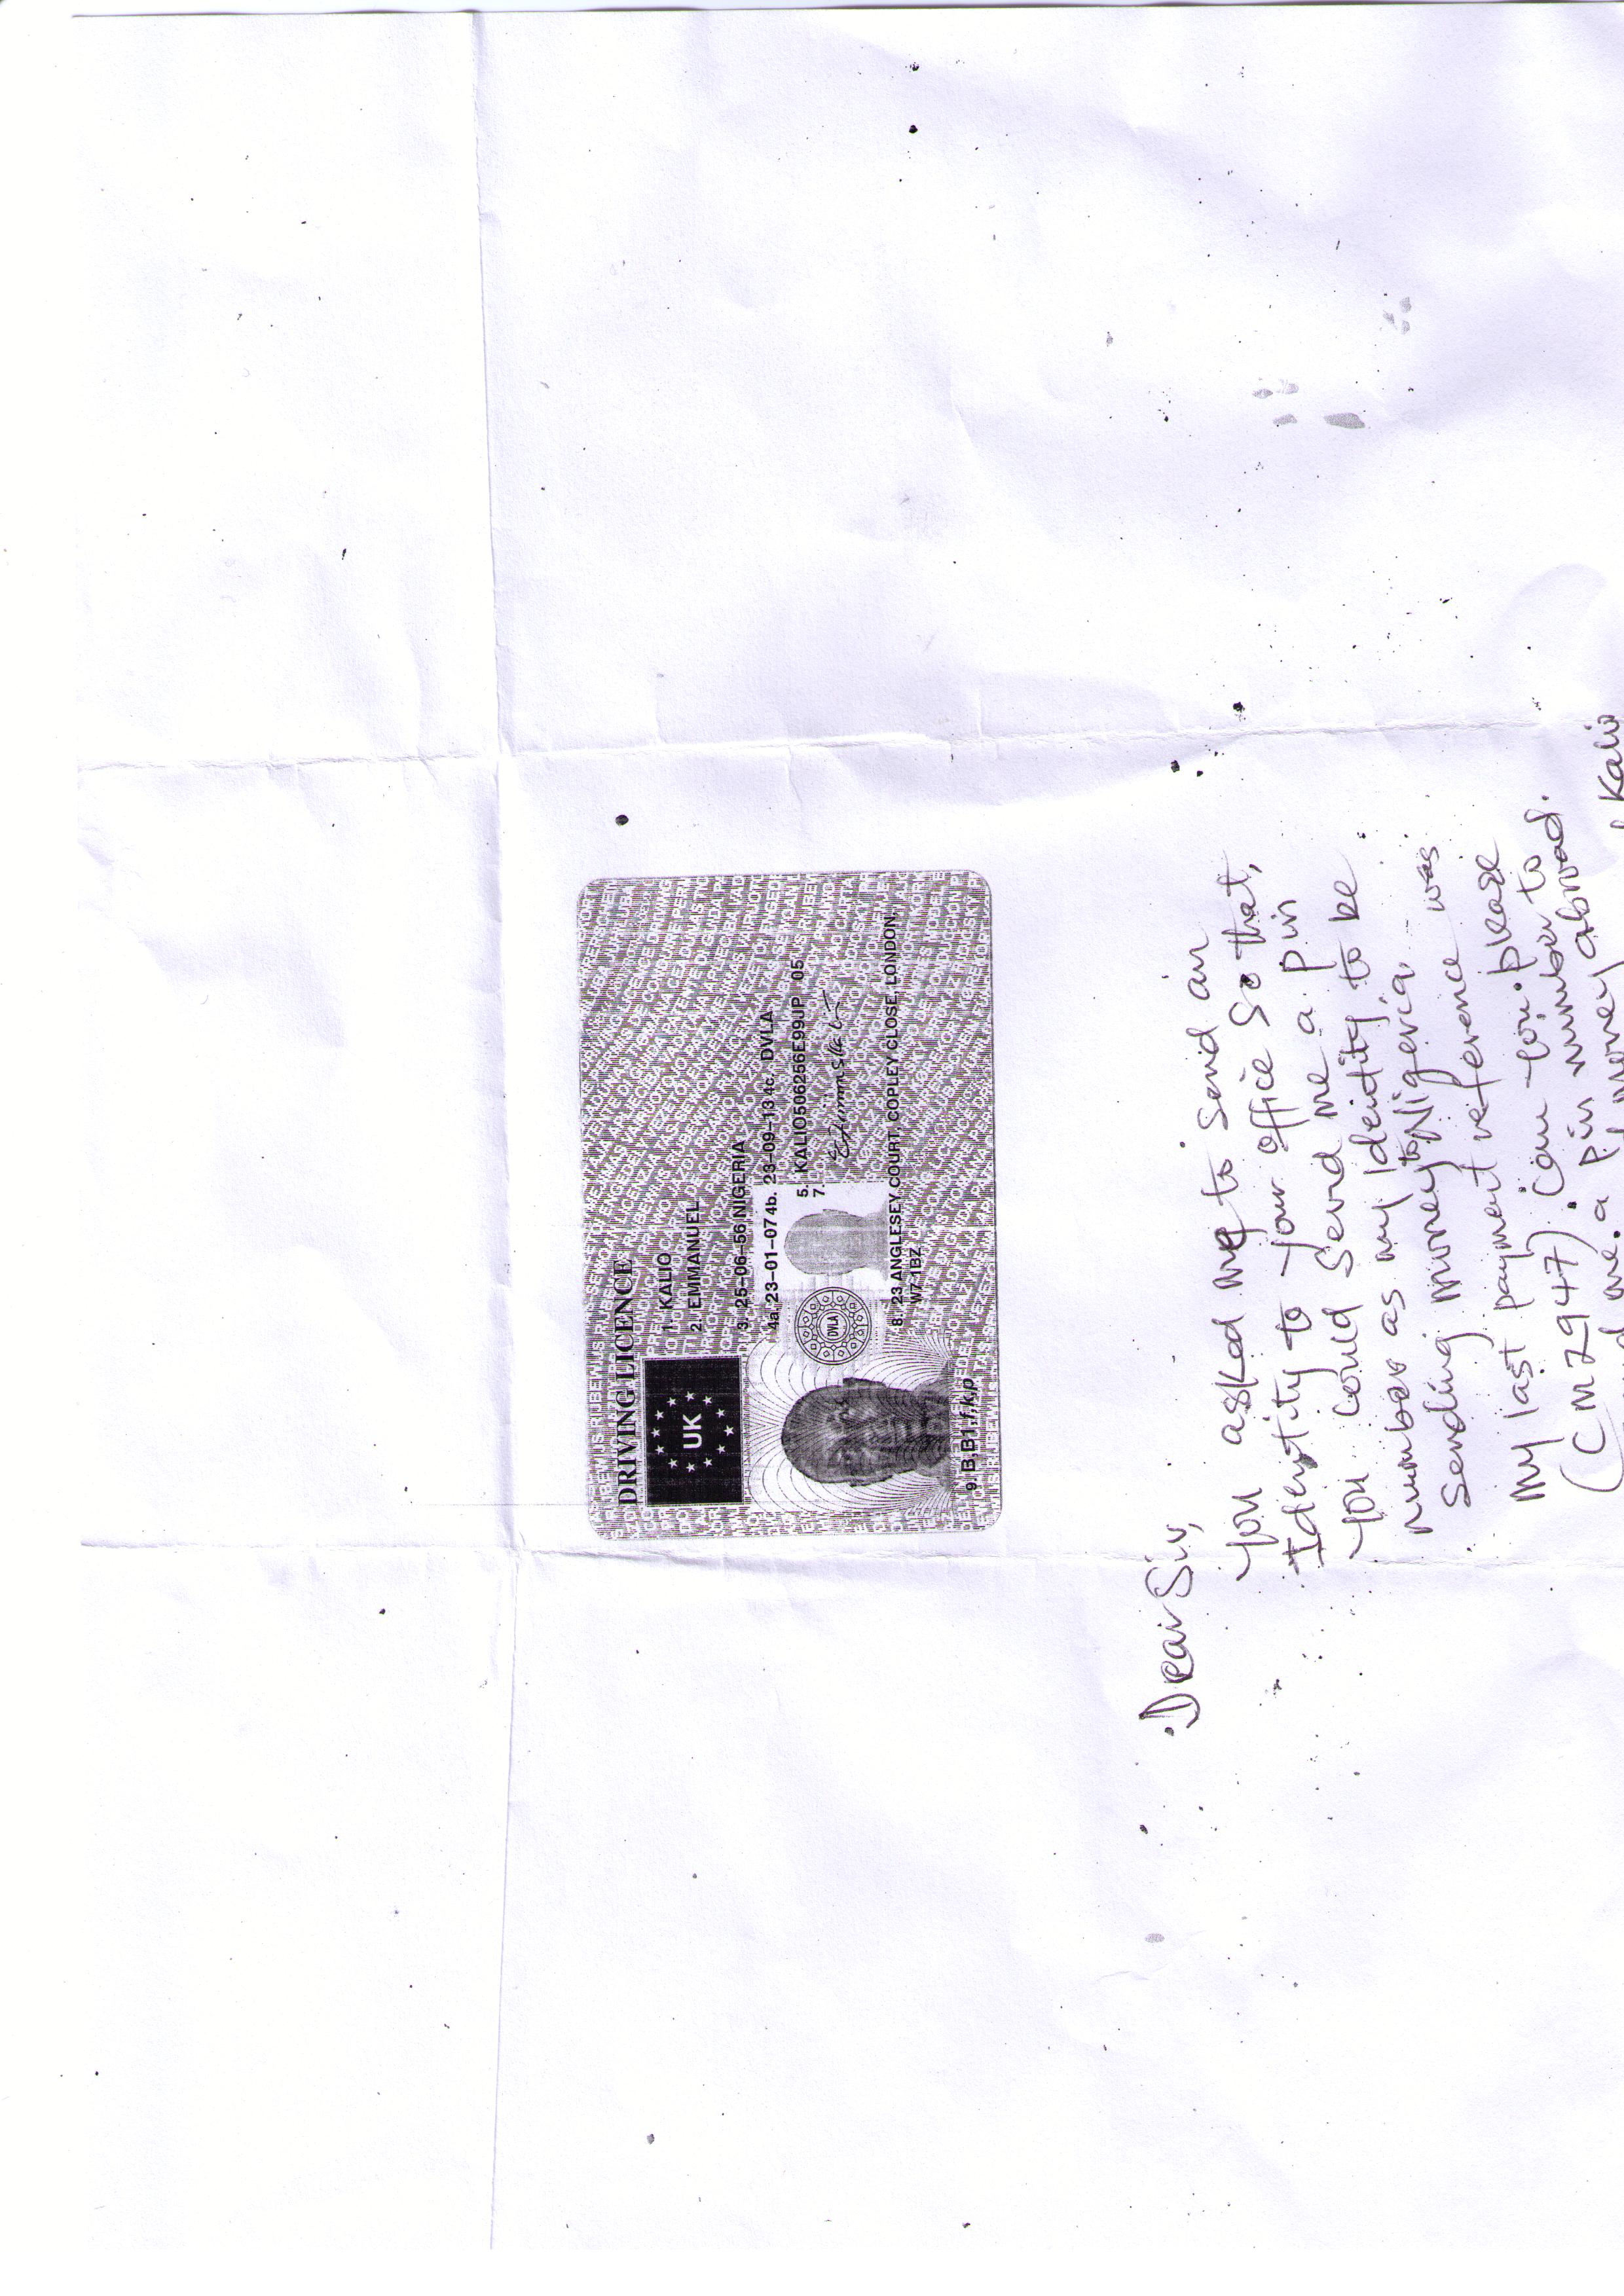 DRIVING LICENCE
UK
1. KALIO
2. EMMANUEL
3. 25-06-56 NIGERIA
4a. 23-01-07 4b. 23-09-13 4c. DVLA
5. KALIO506256E99UP 05
7.
DVLA
8. 23 ANGLESEY COURT, COPLEY CLOSE, LONDON,
W7 1BZ
9. B,B1,f,k,p
Dear Sir,
You asked me to send an
Identity to your office so that,
you could send me a pin
number as my Identity to be
sending money to Nigeria.
My last payment reference was
(CM2947). Can you please to
me. a pin number
money abroad.
Kalio